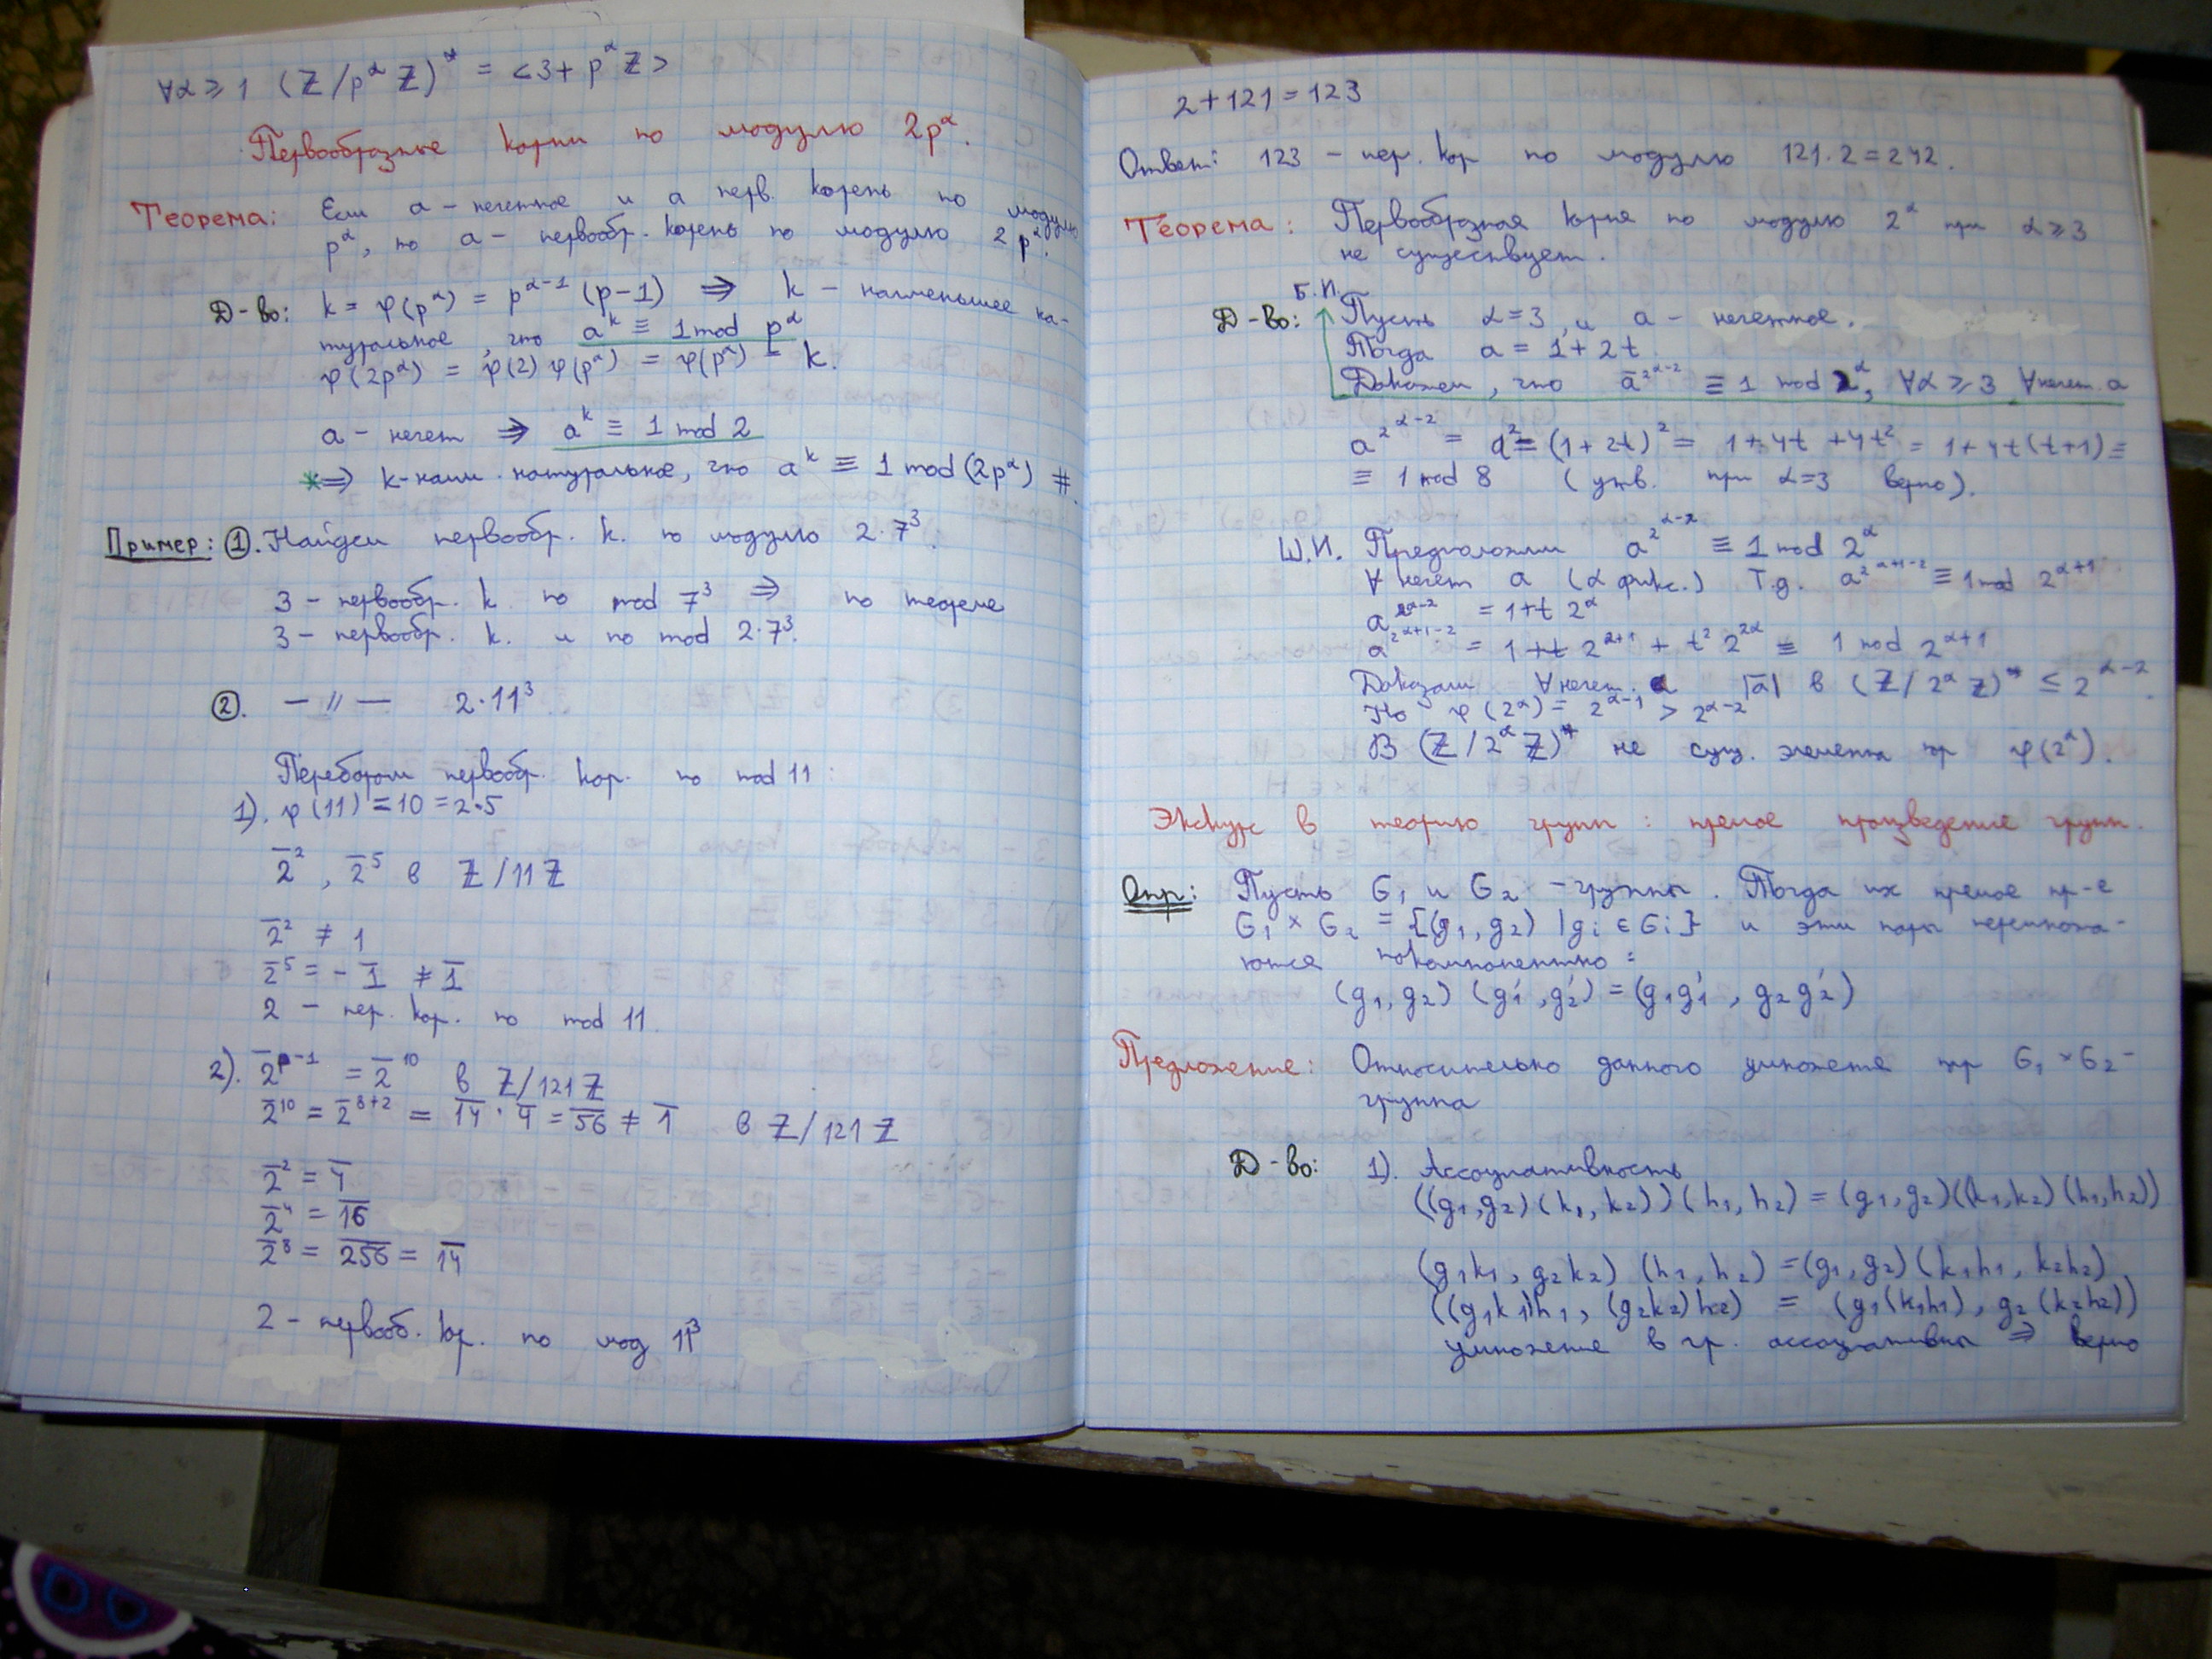 ∀α ⩾ 1 (Z/p^α Z)* = <3 + p^α Z>
Первообразные корни по модулю 2p^α.
Теорема: Если a - нечетное и a перв. корень по модулю
p^α, то a - первообр. корень по модулю 2p^α.
Д-во: k = φ(p^α) = p^(α-1) (p-1) ⇒ k - наименьшее на-
туральное, что a^k ≡ 1 mod p^α
φ(2p^α) = φ(2) φ(p^α) = φ(p^α) = k.
a - нечет ⇒ a^k ≡ 1 mod 2
* ⇒ k - наим. натуральное, что a^k ≡ 1 mod (2p^α) #
Пример: ①. Найдем первообр. k. по модулю 2·7³.
3 - первообр. k по mod 7³ ⇒ по теореме
3 - первообр. k. и по mod 2·7³.
②. — // — 2·11³
Перебором первообр. кор. по mod 11:
1). φ(11) = 10 = 2·5
2̄², 2̄⁵ в Z/11Z
2̄² ≠ 1
2̄⁵ = -1̄ ≠ 1̄
2 - пер. кор. по mod 11.
2). 2̄^(p-1) = 2̄¹⁰ в Z/121Z
2̄¹⁰ = 2̄^(8+2) = 1̄4̄ · 4̄ = 5̄6̄ ≠ 1̄ в Z/121Z
2̄² = 4̄
2̄⁴ = 1̄6̄
2̄⁸ = 2̄5̄6̄ = 1̄4̄
2 - первооб. кр. по мод 11³
2 + 121 = 123
Ответ: 123 - пер. кор по модулю 121·2 = 242.
Теорема: Первообразная корня по модулю 2^α при α ⩾ 3
не существует.
Б.И.
Д-во: Пусть α = 3, и a - нечетное.
Тогда a = 1 + 2t
Докажем, что ā^(2^(α-2)) ≡ 1 mod 2^α, ∀α ⩾ 3 ∀ нечет. a
a^(2^(α-2)) = a² = (1 + 2t)² = 1 + 4t + 4t² = 1 + 4t(t+1) ≡
≡ 1 mod 8 (утв. при α = 3 верно).
Ш.И. Предположим a^(2^(α-2)) ≡ 1 mod 2^α
∀ нечет a (α фикс.) Т.д. a^(2^(α+1-2)) ≡ 1 mod 2^(α+1)
a^(2^(α-2)) = 1 + t 2^α
a^(2^(α+1-2)) = 1 + t 2^(α+1) + t² 2^(2α) ≡ 1 mod 2^(α+1)
Доказали ∀ нечет. a |ā| в (Z/2^α Z)* ≤ 2^(α-2).
Но φ(2^α) = 2^(α-1) > 2^(α-2)
В (Z/2^α Z)* не сущ. элемента пр φ(2^α).
Экскурс в теорию групп: прямое произведение групп.
Опр: Пусть G₁ и G₂ - группы. Тогда их прямое пр-е
G₁ × G₂ = {(g₁, g₂) | gᵢ ∈ Gᵢ} и эти пары перемножа-
ются покомпонентно:
(g₁, g₂) (g₁', g₂') = (g₁g₁', g₂g₂')
Предложение: Относительно данного умножения G₁ × G₂ -
группа
Д-во: 1). Ассоциативность
((g₁, g₂)(k₁, k₂))(h₁, h₂) = (g₁, g₂)((k₁, k₂)(h₁, h₂))
(g₁k₁, g₂k₂) (h₁, h₂) = (g₁, g₂)(k₁h₁, k₂h₂)
((g₁k₁)h₁, (g₂k₂)h₂) = (g₁(k₁h₁), g₂(k₂h₂))
умножение в гр. ассоциативны ⇒ верно